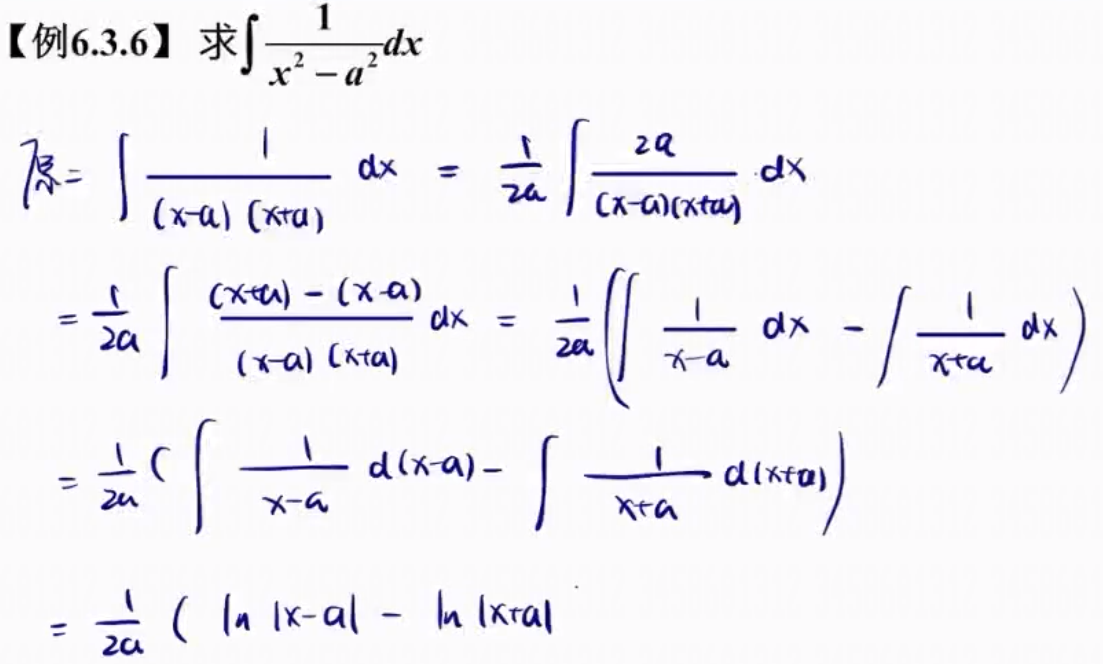 【例6.3.6】 求∫ 1/(x² − a²) dx
原 = ∫ 1/((x-a)(x+a)) dx = 1/2a ∫ 2a/((x-a)(x+a)) dx
= 1/2a ∫ ((x+a) - (x-a))/((x-a)(x+a)) dx = 1/2a (∫ 1/(x-a) dx - ∫ 1/(x+a) dx)
= 1/2a (∫ 1/(x-a) d(x-a) - ∫ 1/(x+a) d(x+a))
= 1/2a ( ln |x-a| - ln |x+a|